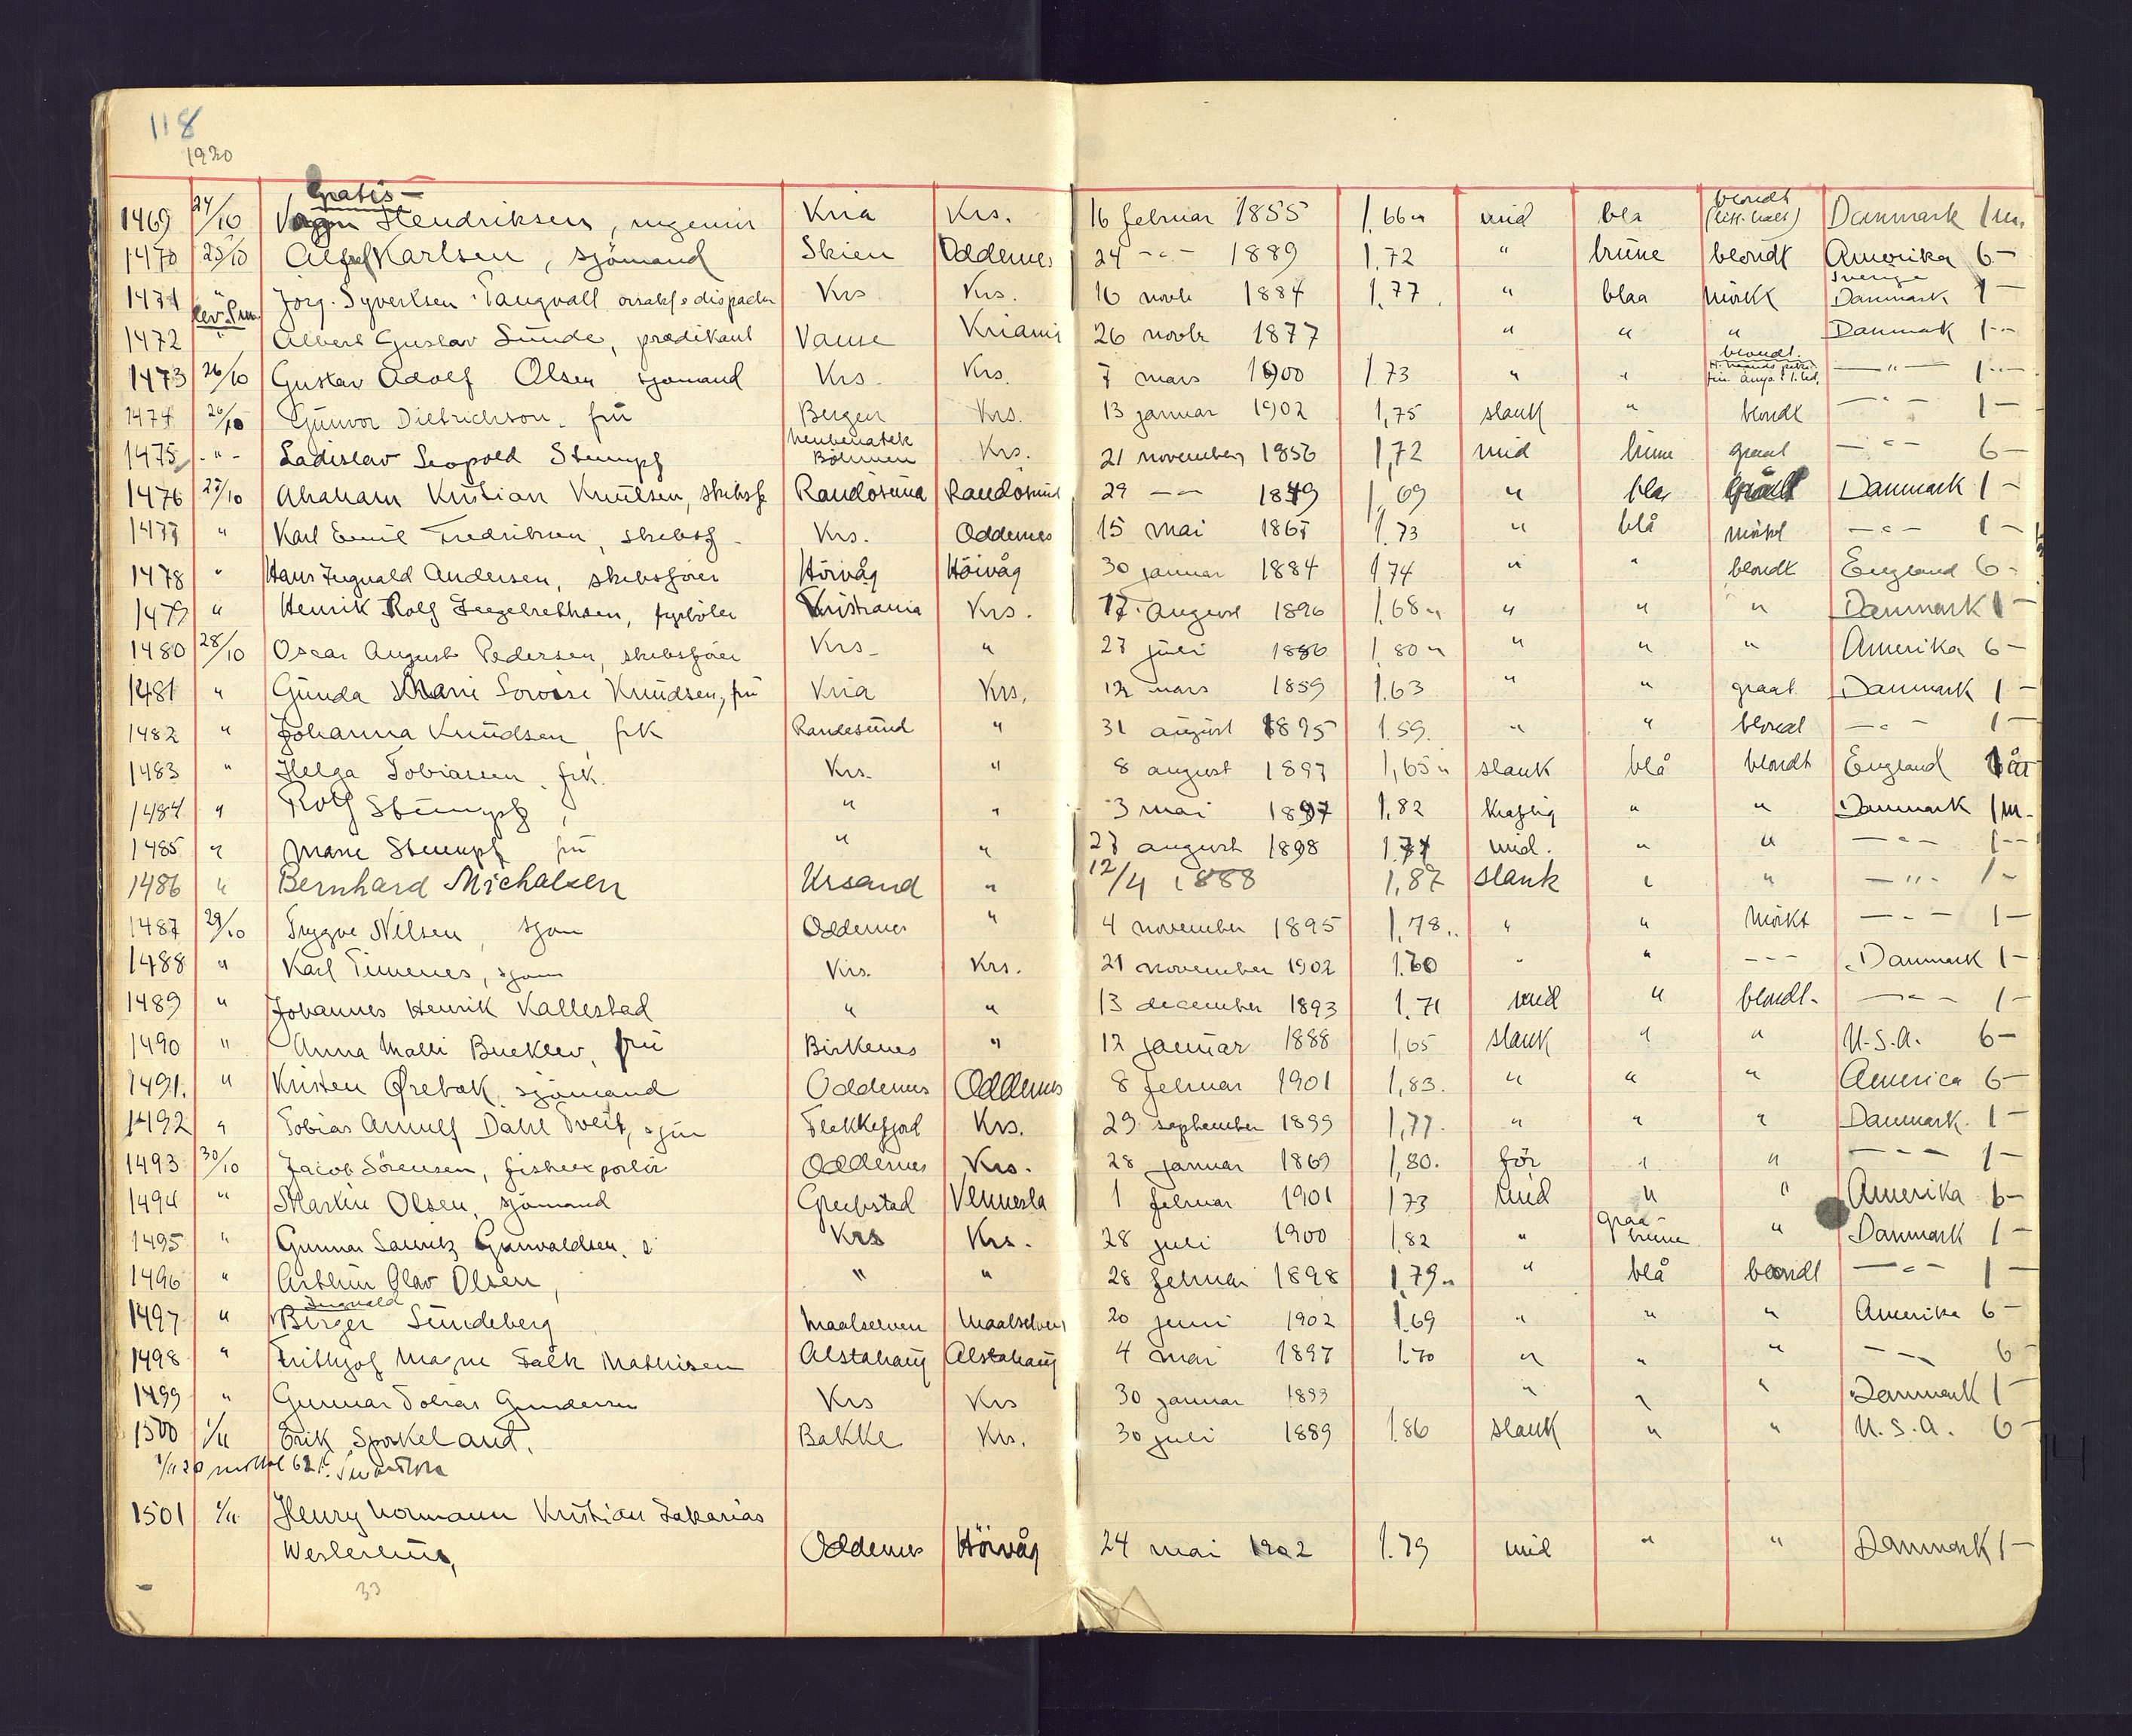 118
1920
Gratis —
1469 24/10 Hendriksen, Kria Krs. 16 februar 1855 1,66 " mid bla blondt Danmark 1 m.
1470 25/10 Alfred Karlsen, sjömand Skien Oddernes 24 - " - 1889 1.72 " brune blondt Amerika 6 -
Sverige
1471 " Jörg. Syvertsen Tangvall Krs Krs. 16 novbr 1884 1.77 " blaa mörkt Danmark 1 -
1472 " Albert Gustav Sunde, prædikant Vanse 26 novbr 1877 " " " Danmark 1 -
blondt
1473 26/10 Gustav Adolf Olsen sjomand Krs. Krs. 7 mars 1900 1.73 " " - " - 1 -
1474 26/10 Gunvor Dietrichson. frü Bergen Krs. 13 januar 1902 1,75 slank " blondt - " - 1 -
1475 - " - Ladislav Leopold Stumpf Böhmen Krs. 21 november 1856 1,72 mid brune graat - " - 6 -
1476 27/10 Abraham Kristian Knutsen, skibsf Randösund Randösund 29 - - 1849 1,69 " bla Danmark 1 -
1477 " Karl Emil Fredriksen, skibsf. Krs. Oddernes 15 mai 1867 1.73 " blå mörkt - " - 1 -
1478 " Hans Ingvald Andersen, skibsförer Höivåg Höivåg 30 januar 1884 1 74 " " blondt England 6 -
1479 " Henrik Rolf Ingebrethsen, fyrböter Kristiania Krs. 17. august 1896 1,68 " " " " Danmark 1 -
1480 28/10 Oscar August Pedersen, skibsförer Krs. " 27 juli 1886 1,80 " " " " Amerika 6 -
1481 " Gunda Marie Lovise Knudsen, frü Kria Krs. 12 mars 1859 1.63 " " graat Danmark 1 -
1482 " Johanna Knudsen frk Randesund " 31 august 1895 1.59. " " blondt - " - 1 -
1483 " Helga Tobiasen, frk. Krs. " 8 august 1897 1,65 " slank blå blondt England 1 år
1484 " Rolf Stumpf, " " 3 mai 1897 1,82 kraftig " " Danmark 1 m.
1485 " Marie Stumpf frü " " 27 august 1898 1.74 mid. " " - " - 1 -
1486 " Bernhard Michalsen Krsand " 12/4 1888 1,87 slank " " - " - 1 -
1487 29/10 Trygve Nilsen, sjom Oddernes " 4 november 1895 1,78 " " " mörkt - " - 1 -
1488 " Karl Timenes, sjom Krs. Krs. 21 november 1902 1.60 " " - - - Danmark 1 -
1489 " Johannes Henrik Kallestad " " 13 december 1893 1.71 mid " blondt - - " - 1 -
1490 " Anna Malli Birkenes " 12 januar 1888 1,65 slank " " U.S.A. 6 -
1491. " Kristen Ørebæk, sjömand Oddernes Oddernes 8 februar 1901 1,83. " " " America 6 -
1492 " Tobias Arnulf Dahl Tveit, sjm Flekkefjord Krs. 29. september 1899 1,77. " " " Danmark. 1 -
1493 30/10 Jacob Sörensen, fiskeexportör Oddernes Krs. 28 januar 1869 1,80. för " " - - - 1 -
1494 " Martin Olsen, sjömand Greipstad Vennesla 1 februar 1901 1 73 mid " " Amerika 6 -
1495 " Gunnar Lauritz Gunvaldsen. s Krs Krs. 28 juli 1900 1.82 " graa-brune " Danmark 1 -
1496 " Arthur Olav Olsen, " " 28 februar 1898 1,79 " " blå blondt - " - 1 -
Ingvald
1497 " Birger Sundeberg Maalselven Maalselven 20 juni 1902 1.69 " " " Amerika 6 -
1498 " Frithjof Magne Falk Mathisen Alstahaug Alstahaug 4 mai 1897 1.70 " " " - - 6 -
1499 " Gunnar Tobias Gundersen Krs Krs 30 januar 1899 " " " Danmark 1 -
1500 1/11 Erik Sporkeland. Bakke Krs. 30 juli 1889 1.86 slank " " U.S.A. 6 -
1/11 20
1501 1/11 Henry Normann Kristian Zakarias
Westerhus, Oddernes Höivåg 24 mai 1902 1.79 mid " " Danmark 1 -
33